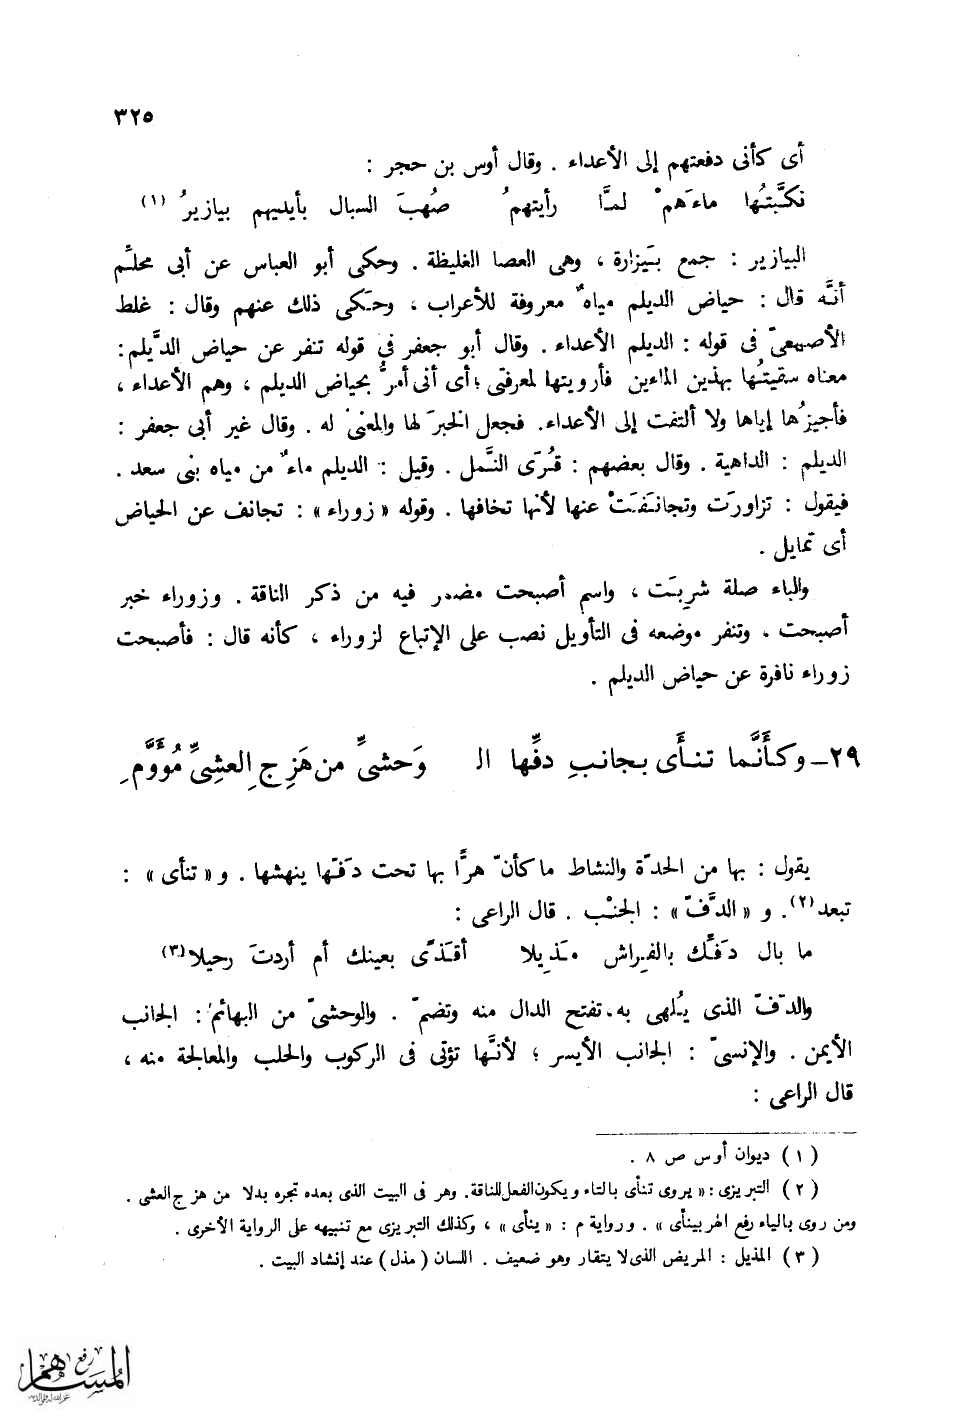 ٣٢٥
أى كأنى دفعتهم إلى الأعداء . وقال أوس بن حجر :
نكَّبتُها ماءَهمْ لمَّا رأيتهمُ صُهبَ السبال بأيديهم بيازيرُ (١)
البيازير : جمع بَيزارة ، وهى العصا الغليظة . وحكى أبو العباس عن أبى محلَّم
أنَّه قال : حياض الديلم مياهٌ معروفة للأعراب ، وحَكى ذلك عنهم وقال : غلط
الأصمعىّ فى قوله : الديلم الأعداء . وقال أبو جعفر فى قوله تنفر عن حياض الدَّيلم :
معناه سقيتُها بهذين الماءين فأرويتها لمعرفتى ؛ أى أنى أمرُّ بحياض الديلم ، وهم الأعداء ،
فأجيزُها إياها ولا ألتفت إلى الأعداء. فجعل الخبرَ لها والمعنى له . وقال غير أبى جعفر :
الديلم : الداهية . وقال بعضهم : قُرَى النَّمل . وقيل : الديلم ماءٌ من مياه بنى سعد .
فيقول : تزاورَت وتجانَفَتْ عنها لأنها تخافها . وقوله « زوراء » : تجانف عن الحياض
أى تمايل .
والباء صلة شربَت ، واسم أصبحت مضمر فيه من ذكر الناقة . وزوراء خبر
أصبحت ، وتنفر موضعه فى التأويل نصب على الإتباع لزوراء ، كأنه قال : فأصبحت
زوراء نافرة عن حياض الديلم .
٢٩ــ وكَأَنَّما تنأَى بجانبِ دفِّها الـ وَحشىِّ من هَزِجِ العشِىِّ مُؤَوَّمِ
يقول : بها من الحدّة والنشاط ما كأنّ هرًّا بها تحت دَفّها ينهشها . و « تنأى » :
تبعد(٢). و « الدَّفّ » : الجنْب . قال الراعى :
ما بال دَفِّك بالفِراش مَذِيلا أقَذًى بعينك أم أردتَ رحيلا(٣)
والدّفّ الذى يُلهى به، تفتح الدال منه وتضمّ . والوحشىّ من البهائم : الجانب
الأيمن . والإنسىّ : الجانب الأيسر ؛ لأنَّها تؤتى فى الركوب والحلب والمعالجة منه ،
قال الراعى :
( ١ ) ديوان أوس ص ٨ .
( ٢ ) التبريزى : « يروى تنأى بالتاء ويكون الفعل للناقة. وهر فى البيت الذى بعده تجره بدلا من هزج العشى .
ومن روى بالياء رفع الهر بينأى » . ورواية م : « ينأى » ، وكذلك التبريزى مع تنبيهه على الرواية الأخرى .
( ٣ ) المذيل : المريض الذى لا يتقار وهو ضعيف . اللسان ( مذل ) عند إنشاد البيت .